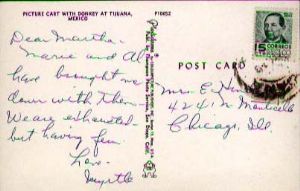 PICTURE CART WITH DONKEY AT TIJUANA,
MEXICO
P10852
Dear Martha -
Marie and Al
have brought me
down with them -
We are exhausted -
but having fun.
Love.
Myrtle
POST CARD
CORREOS
Mrs. E.
4241 N. Monticello
Chicago, Ill.